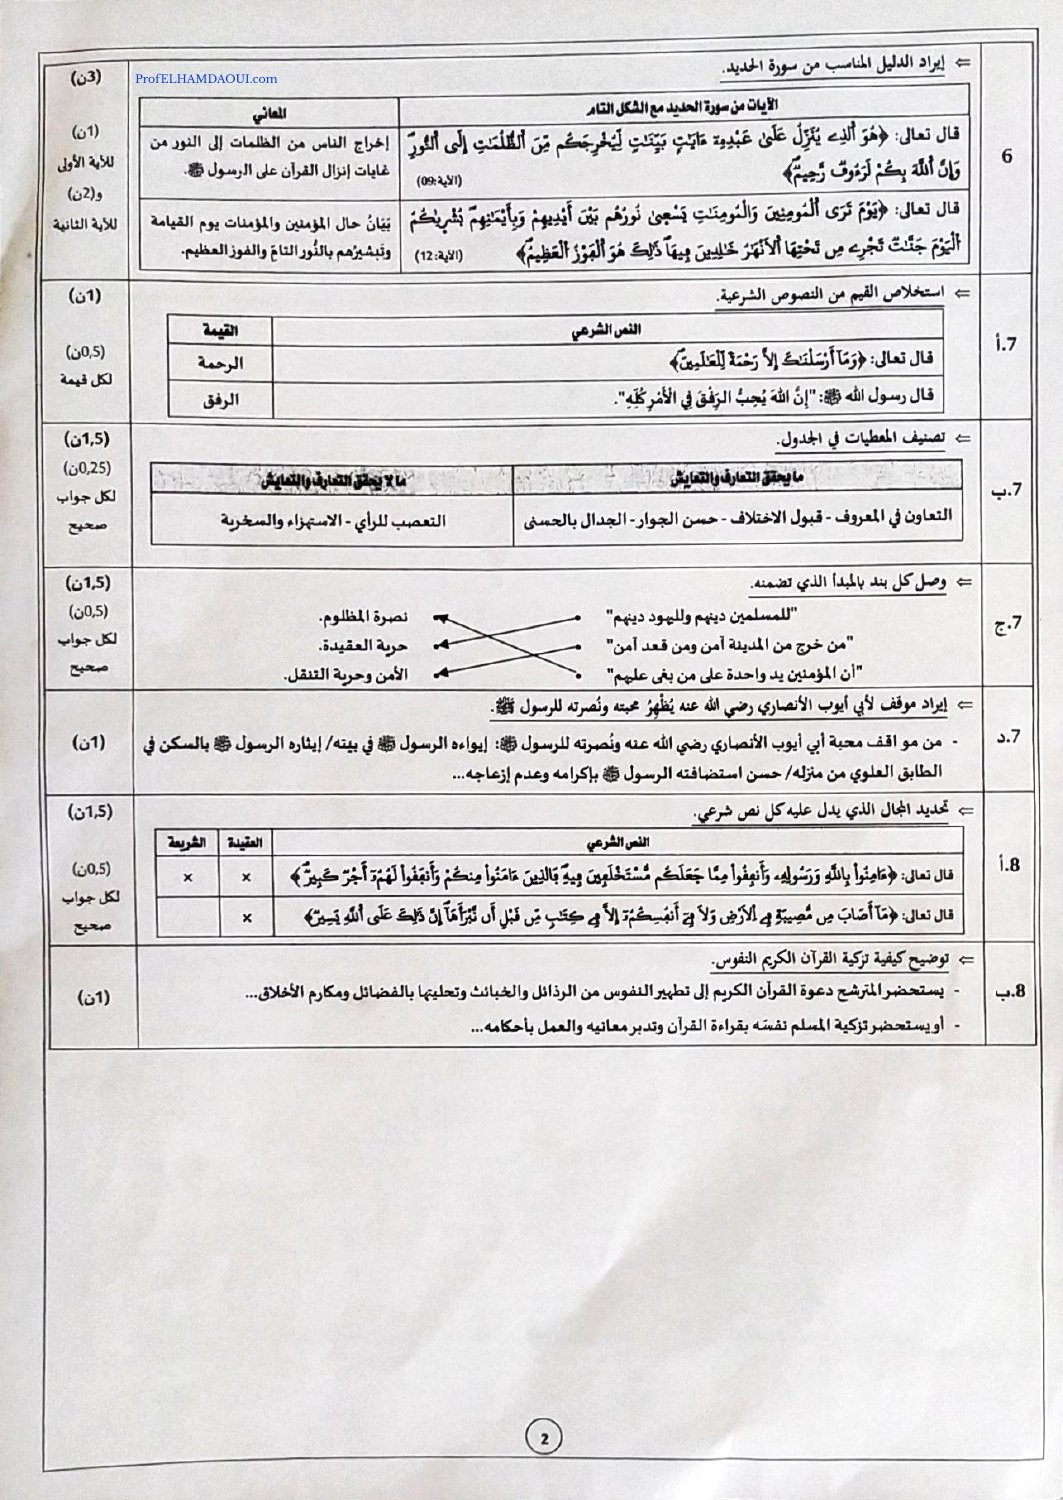 ProfELHAMDAOUI.com
6
⇐ إيراد الدليل المناسب من سورة الحديد.
(3ن)
الآيات من سورة الحديد مع الشكل التام
المعاني
قال تعالى: ﴿هُوَ اَلذِے يُنَزِّلُ عَلَىٰ عَبْدِهِۦٓ ءَايَٰتٍ بَيِّنَٰتٍ لِّيُخْرِجَكُم مِّنَ اَلظُّلُمَٰتِ إِلَى اَلنُّورِۖ
وَإِنَّ اَللَّهَ بِكُمْ لَرَءُوفٌ رَّحِيمٌۖ﴾ (الآية:09)
إخراج الناس من الظلمات إلى النور من
غايات إنزال القرآن على الرسول ﷺ.
(1ن)
للآية الأولى
و(2ن)
للآية الثانية
قال تعالى: ﴿يَوْمَ تَرَى اَلْمُومِنِينَ وَالْمُومِنَٰتِ يَسْعِىٰ نُورُهُم بَيْنَ أَيْدِيهِمْ وَبِأَيْمَٰنِهِمۖ بُشْرٜيٰكُمُ
اُلْيَوْمَ جَنَّٰتٌ تَجْرِے مِن تَحْتِهَا اَلَانْهَٰرُ خَٰلِدِينَ فِيهَاۖ ذَٰلِكَ هُوَ اَلْفَوْزُ اَلْعَظِيمُۖ﴾ (الآية:12)
بَيَانُ حال المؤمنين والمؤمنات يوم القيامة
وتَبشيرُهم بالنُّور التامّ والفوز العظيم.
7.أ
⇐ استخلاص القيم من النصوص الشرعية.
(1ن)
النص الشرعي
القيمة
قال تعالى: ﴿وَمَآ أَرْسَلْنَٰكَ إِلاَّ رَحْمَةً لِّلْعَٰلَمِينَۖ﴾
الرحمة
قال رسول الله ﷺ: "إِنَّ اللهَ يُحِبُّ الرِّفْقَ فِي الْأَمْرِ كُلِّهِ".
الرفق
(0,5ن)
لكل قيمة
7.ب
⇐ تصنيف المعطيات في الجدول.
(1,5ن)
ما يحقق التعارف والتعايش
ما لا يحقق التعارف والتعايش
التعاون في المعروف - قبول الاختلاف - حسن الجوار- الجدال بالحسنى
التعصب للرأي - الاستهزاء والسخرية
(0,25ن)
لكل جواب
صحيح
7.ج
⇐ وصل كل بند بالمبدأ الذي تضمنه.
(1,5ن)
"للمسلمين دينهم ولليهود دينهم"
نصرة المظلوم.
"من خرج من المدينة آمن ومن قعد آمن"
حرية العقيدة.
"أن المؤمنين يد واحدة على من بغى عليهم"
الأمن وحرية التنقل.
(0,5ن)
لكل جواب
صحيح
7.د
⇐ إيراد موقف لأبي أيوب الأنصاري رضي الله عنه يُظْهِرُ محبته ونُصرته للرسول ﷺ.
- من مو اقف محبة أبي أيوب الأنصاري رضي الله عنه ونُصرته للرسول ﷺ: إيواءه الرسول ﷺ في بيته/ إيثاره الرسول ﷺ بالسكن في
الطابق العلوي من منزله/ حسن استضافته الرسول ﷺ بإكرامه وعدم إزعاجه...
(1ن)
8.أ
⇐ تحديد المجال الذي يدل عليه كل نص شرعي.
(1,5ن)
النص الشرعي
العقيدة
الشريعة
قال تعالى: ﴿ءَامِنُواْ بِاللَّهِ وَرَسُولِهِۦ وَأَنفِقُواْ مِمَّا جَعَلَكُم مُّسْتَخْلَفِينَ فِيهِۖ فَالذِينَ ءَامَنُواْ مِنكُمْ وَأَنفَقُواْ لَهُمُۥٓ أَجْرٌ كَبِيرٌۖ﴾
×
×
قال تعالى: ﴿مَآ أَصَابَ مِن مُّصِيبَةٍ فِے اِلَارْضِ وَلَا فِےٓ أَنفُسِكُمُۥٓ إِلاَّ فِے كِتَٰبٍ مِّن قَبْلِ أَن نَّبْرَأَهَآۖ إِنَّ ذَٰلِكَ عَلَى اَللَّهِ يَسِيرٌۖ﴾
×
(0,5ن)
لكل جواب
صحيح
8.ب
⇐ توضيح كيفية تزكية القرآن الكريم النفوس.
- يستحضر المترشح دعوة القرآن الكريم إلى تطهير النفوس من الرذائل والخبائث وتحليتها بالفضائل ومكارم الأخلاق...
- أو يستحضر تزكية المسلم نفسَه بقراءة القرآن وتدبر معانيه والعمل بأحكامه...
(1ن)
2